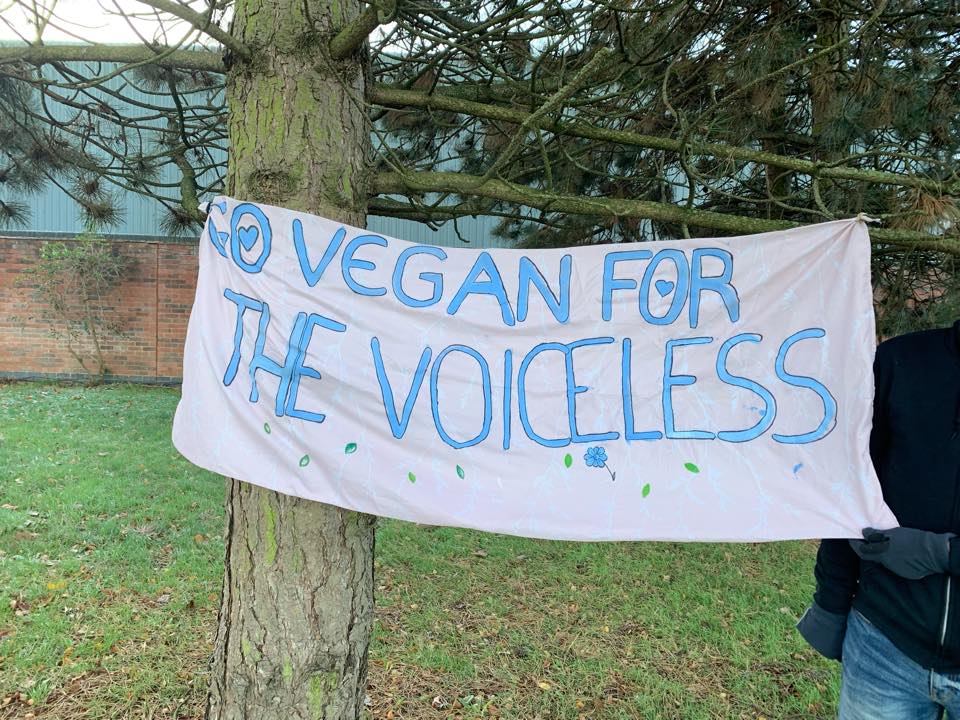 GO VEGAN FOR
THE VOICELESS